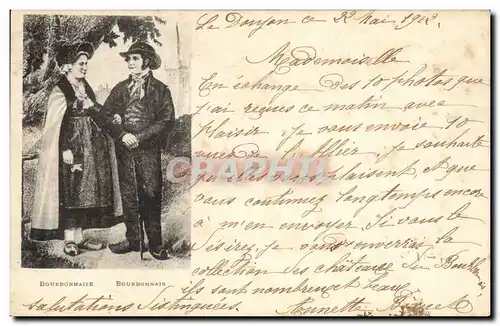 Le Donjon ce 22 Mai 1903.
Mademoiselle
En échange des 10 photos que
j'ai reçues ce matin avec
plaisir, je vous envoie 10
vues de l'Allier. Je souhaite
qu'elles vous plaisent et que
vous continuiez longtemps encore
à m'en envoyer. Si vous le
désirez, je vous enverrai la
collection des châteaux du Bourbonnais,
ils sont nombreux et beaux.
Salutations distinguées.
BOURBONNAISE BOURBONNAIS
CPARAMA